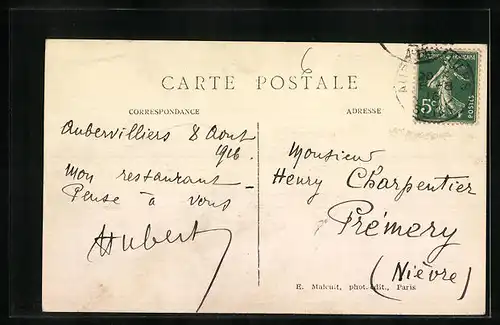 CARTE POSTALE
CORRESPONDANCE
ADRESSE
5c
POSTES
Aubervilliers 8 Aout
1916.
Mon restaurant
Pense à vous
Hubert
Monsieur
Henry Charpentier
Prémery
(Nièvre)
E. Malcuit, phot.-édit., Paris